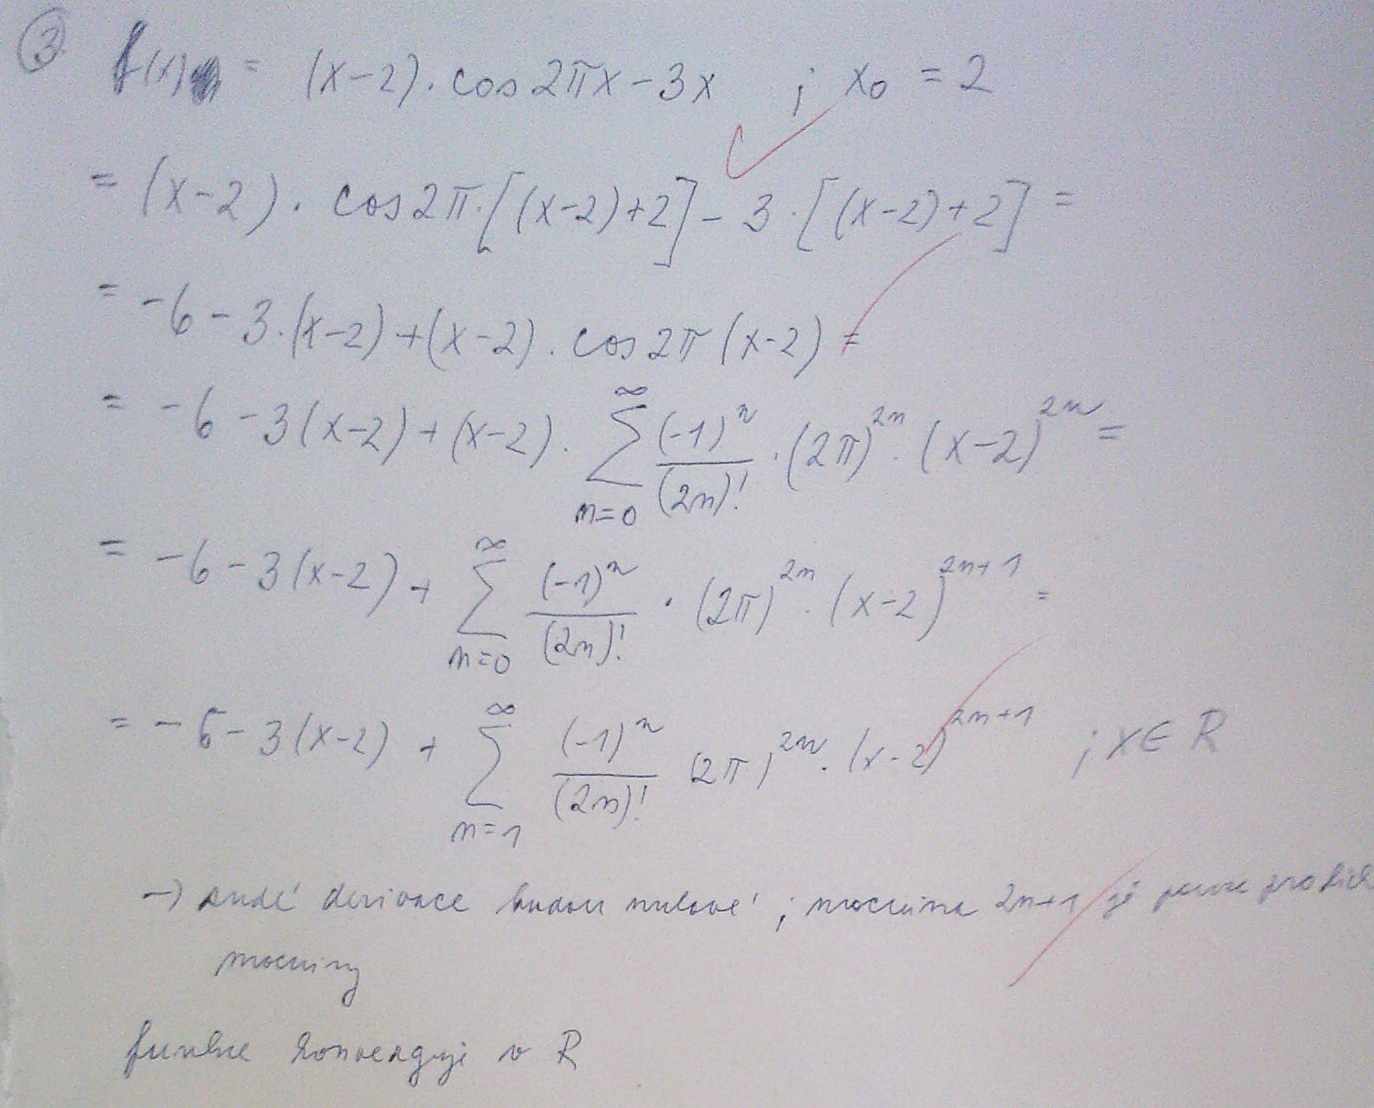 3.
f(x) = (x-2).cos2πx-3x ; x₀ = 2
= (x-2). cos2π.[(x-2)+2]-3.[(x-2)+2] =
= -6-3.(x-2)+(x-2).cos2π(x-2) =
= -6-3(x-2)+(x-2). ∑_{n=0}^{∞} (-1)^n/(2n)! .(2π)^{2n}.(x-2)^{2n} =
= -6-3(x-2)+ ∑_{n=0}^{∞} (-1)^n/(2n)! .(2π)^{2n}.(x-2)^{2n+1} =
= -6-3(x-2)+ ∑_{n=1}^{∞} (-1)^n/(2n)! (2π)^{2n}.(x-2)^{2n+1} ; x∈R
→ sudé derivace budou nulové ; mocnina 2n+1 je pouze pro liché
mocniny
funkce konverguje v R